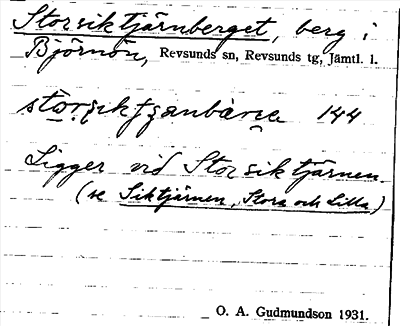 Storsiktjärnberget, berg i
Björnön, Revsunds sn, Revsunds tg, Jämtl. l.
144
Ligger vid Storsiktjärnen.
(se Siktjärnen, Stora och Lilla)
O. A. Gudmundson 1931.